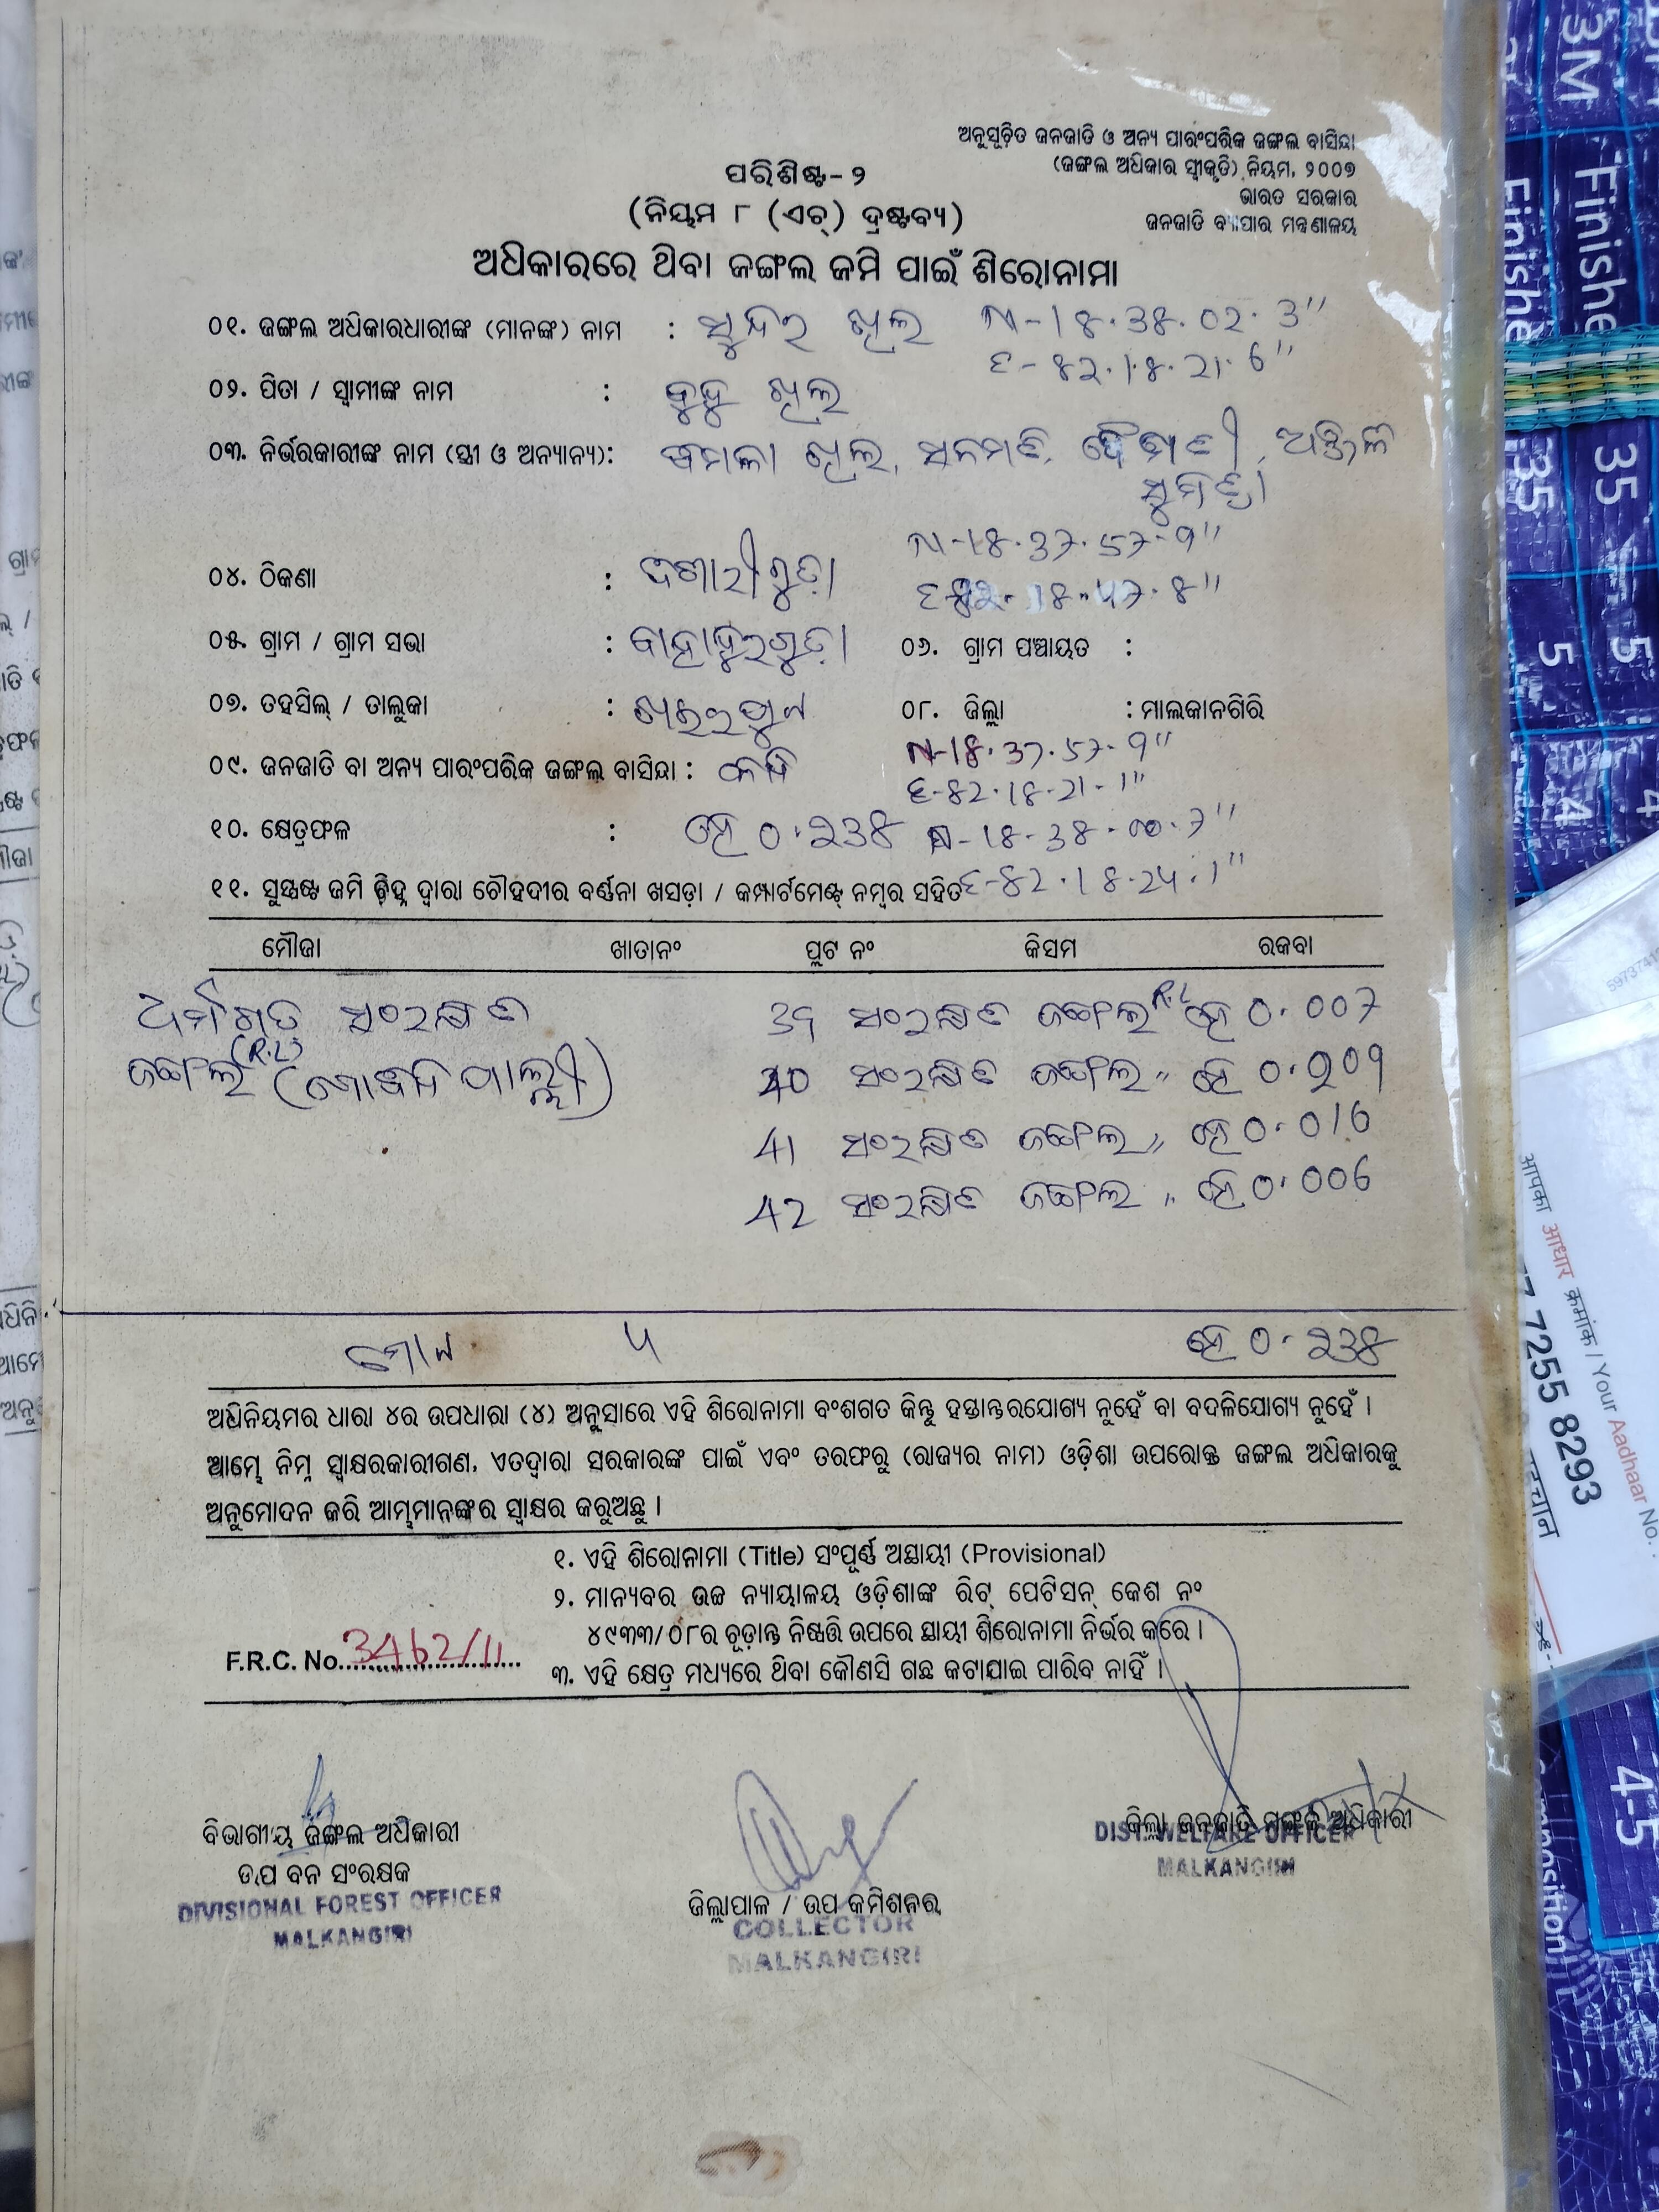 ଅନୁସୂଚିତ ଜନଜାତି ଓ ଅନ୍ୟ ପାରଂପରିକ ଜଙ୍ଗଲ ବାସିନ୍ଦା
(ଜଙ୍ଗଲ ଅଧିକାର ସ୍ୱୀକୃତି) ନିୟମ, ୨୦୦୭
ଭାରତ ସରକାର
ଜନଜାତି ବ୍ୟାପାର ମନ୍ତ୍ରଣାଳୟ
ପରିଶିଷ୍ଟ- ୨
(ନିୟମ ୮ (ଏଚ୍) ଦ୍ରଷ୍ଟବ୍ୟ)
ଅଧିକାରରେ ଥିବା ଜଙ୍ଗଲ ଜମି ପାଇଁ ଶିରୋନାମା
୦୧. ଜଙ୍ଗଲ ଅଧିକାରଧାରୀଙ୍କ (ମାନଙ୍କ) ନାମ : ସୁନ୍ଦର ଖିଲ N-18.38.02.3"
E-82.18.21.6"
୦୨. ପିତା / ସ୍ୱାମୀଙ୍କ ନାମ : ବୁଦୁ ଖିଲ
୦୩. ନିର୍ଭରକାରୀଙ୍କ ନାମ (ସ୍ତ୍ରୀ ଓ ଅନ୍ୟାନ୍ୟ): କମଳା ଖିଲ, ସନମତି,
N-18.37.57.9"
୦୪. ଠିକଣା :
୦୫. ଗ୍ରାମ / ଗ୍ରାମ ସଭା : ବାହାଦୁରଗୁଡ଼ା ୦୬. ଗ୍ରାମ ପଞ୍ଚାୟତ :
୦୭. ତହସିଲ୍ / ତାଲୁକା : ଖଇରପୁଟ ୦୮. ଜିଲ୍ଲା : ମାଲକାନଗିରି
N-18.37.57.9"
୦୯. ଜନଜାତି ବା ଅନ୍ୟ ପାରଂପରିକ ଜଙ୍ଗଲ ବାସିନ୍ଦା :
E-82.18.21.1"
୧୦. କ୍ଷେତ୍ରଫଳ : ହେ ୦.୨୩୫ N-18.38.00.7"
୧୧. ସୁସ୍ପଷ୍ଟ ଜମି ଚିହ୍ନ ଦ୍ୱାରା ଚୌହଦୀର ବର୍ଣ୍ଣନା ଖସଡ଼ା / କମ୍ପାର୍ଟମେଣ୍ଟ୍ ନମ୍ବର ସହିତ E-82.18.24.1"
ମୌଜା ଖାତାନଂ ପ୍ଲଟ ନଂ କିସମ ରକବା
ସଂରକ୍ଷିତ 39 ସଂରକ୍ଷିତ ଜଙ୍ଗଲ R.L ହେ 0.007
ଜଙ୍ଗଲ (R.L) 40 ସଂରକ୍ଷିତ ଜଙ୍ଗଲ " ହେ 0.209
41 ସଂରକ୍ଷିତ ଜଙ୍ଗଲ " ହେ 0.016
42 ସଂରକ୍ଷିତ ଜଙ୍ଗଲ " ହେ 0.006
ମୋଟ ହେ ୦.୨୩୫
ଅଧିନିୟମର ଧାରା ୪ର ଉପଧାରା (୪) ଅନୁସାରେ ଏହି ଶିରୋନାମା ବଂଶଗତ କିନ୍ତୁ ହସ୍ତାନ୍ତରଯୋଗ୍ୟ ନୁହେଁ ବା ବଦଳିଯୋଗ୍ୟ ନୁହେଁ ।
ଆମ୍ଭେ ନିମ୍ନ ସ୍ୱାକ୍ଷରକାରୀଗଣ, ଏତଦ୍ୱାରା ସରକାରଙ୍କ ପାଇଁ ଏବଂ ତରଫରୁ (ରାଜ୍ୟର ନାମ) ଓଡ଼ିଶା ଉପରୋକ୍ତ ଜଙ୍ଗଲ ଅଧିକାରକୁ
ଅନୁମୋଦନ କରି ଆମ୍ଭମାନଙ୍କର ସ୍ୱାକ୍ଷର କରୁଅଛୁ ।
୧. ଏହି ଶିରୋନାମା (Title) ସଂପୂର୍ଣ୍ଣ ଅସ୍ଥାୟୀ (Provisional)
୨. ମାନ୍ୟବର ଉଚ୍ଚ ନ୍ୟାୟାଳୟ ଓଡ଼ିଶାଙ୍କ ରିଟ୍ ପେଟିସନ୍ କେଶ ନଂ
୪୯୩୩/୦୮ର ଚୂଡ଼ାନ୍ତ ନିଷ୍ପତ୍ତି ଉପରେ ସ୍ଥାୟୀ ଶିରୋନାମା ନିର୍ଭର କରେ ।
F.R.C. No. 3462/11
୩. ଏହି କ୍ଷେତ୍ର ମଧ୍ୟରେ ଥିବା କୌଣସି ଗଛ କଟାଯାଇ ପାରିବ ନାହିଁ ।
ବିଭାଗୀୟ ଜଙ୍ଗଲ ଅଧିକାରୀ
ଉପ ବନ ସଂରକ୍ଷକ
DIVISIONAL FOREST OFFICER
MALKANGIRI
ଜିଲ୍ଲାପାଳ / ଉପ କମିଶନର
COLLECTOR
MALKANGIRI
ଜିଲ୍ଲା ଜନଜାତି ମଙ୍ଗଳ ଅଧିକାରୀ
DIST. WELFARE OFFICER
MALKANGIRI
3M
Finishe
Finishe
35
35
5
5
4
4-5
आपका आधार क्रमांक / Your Aadhaar No.
7255 8293